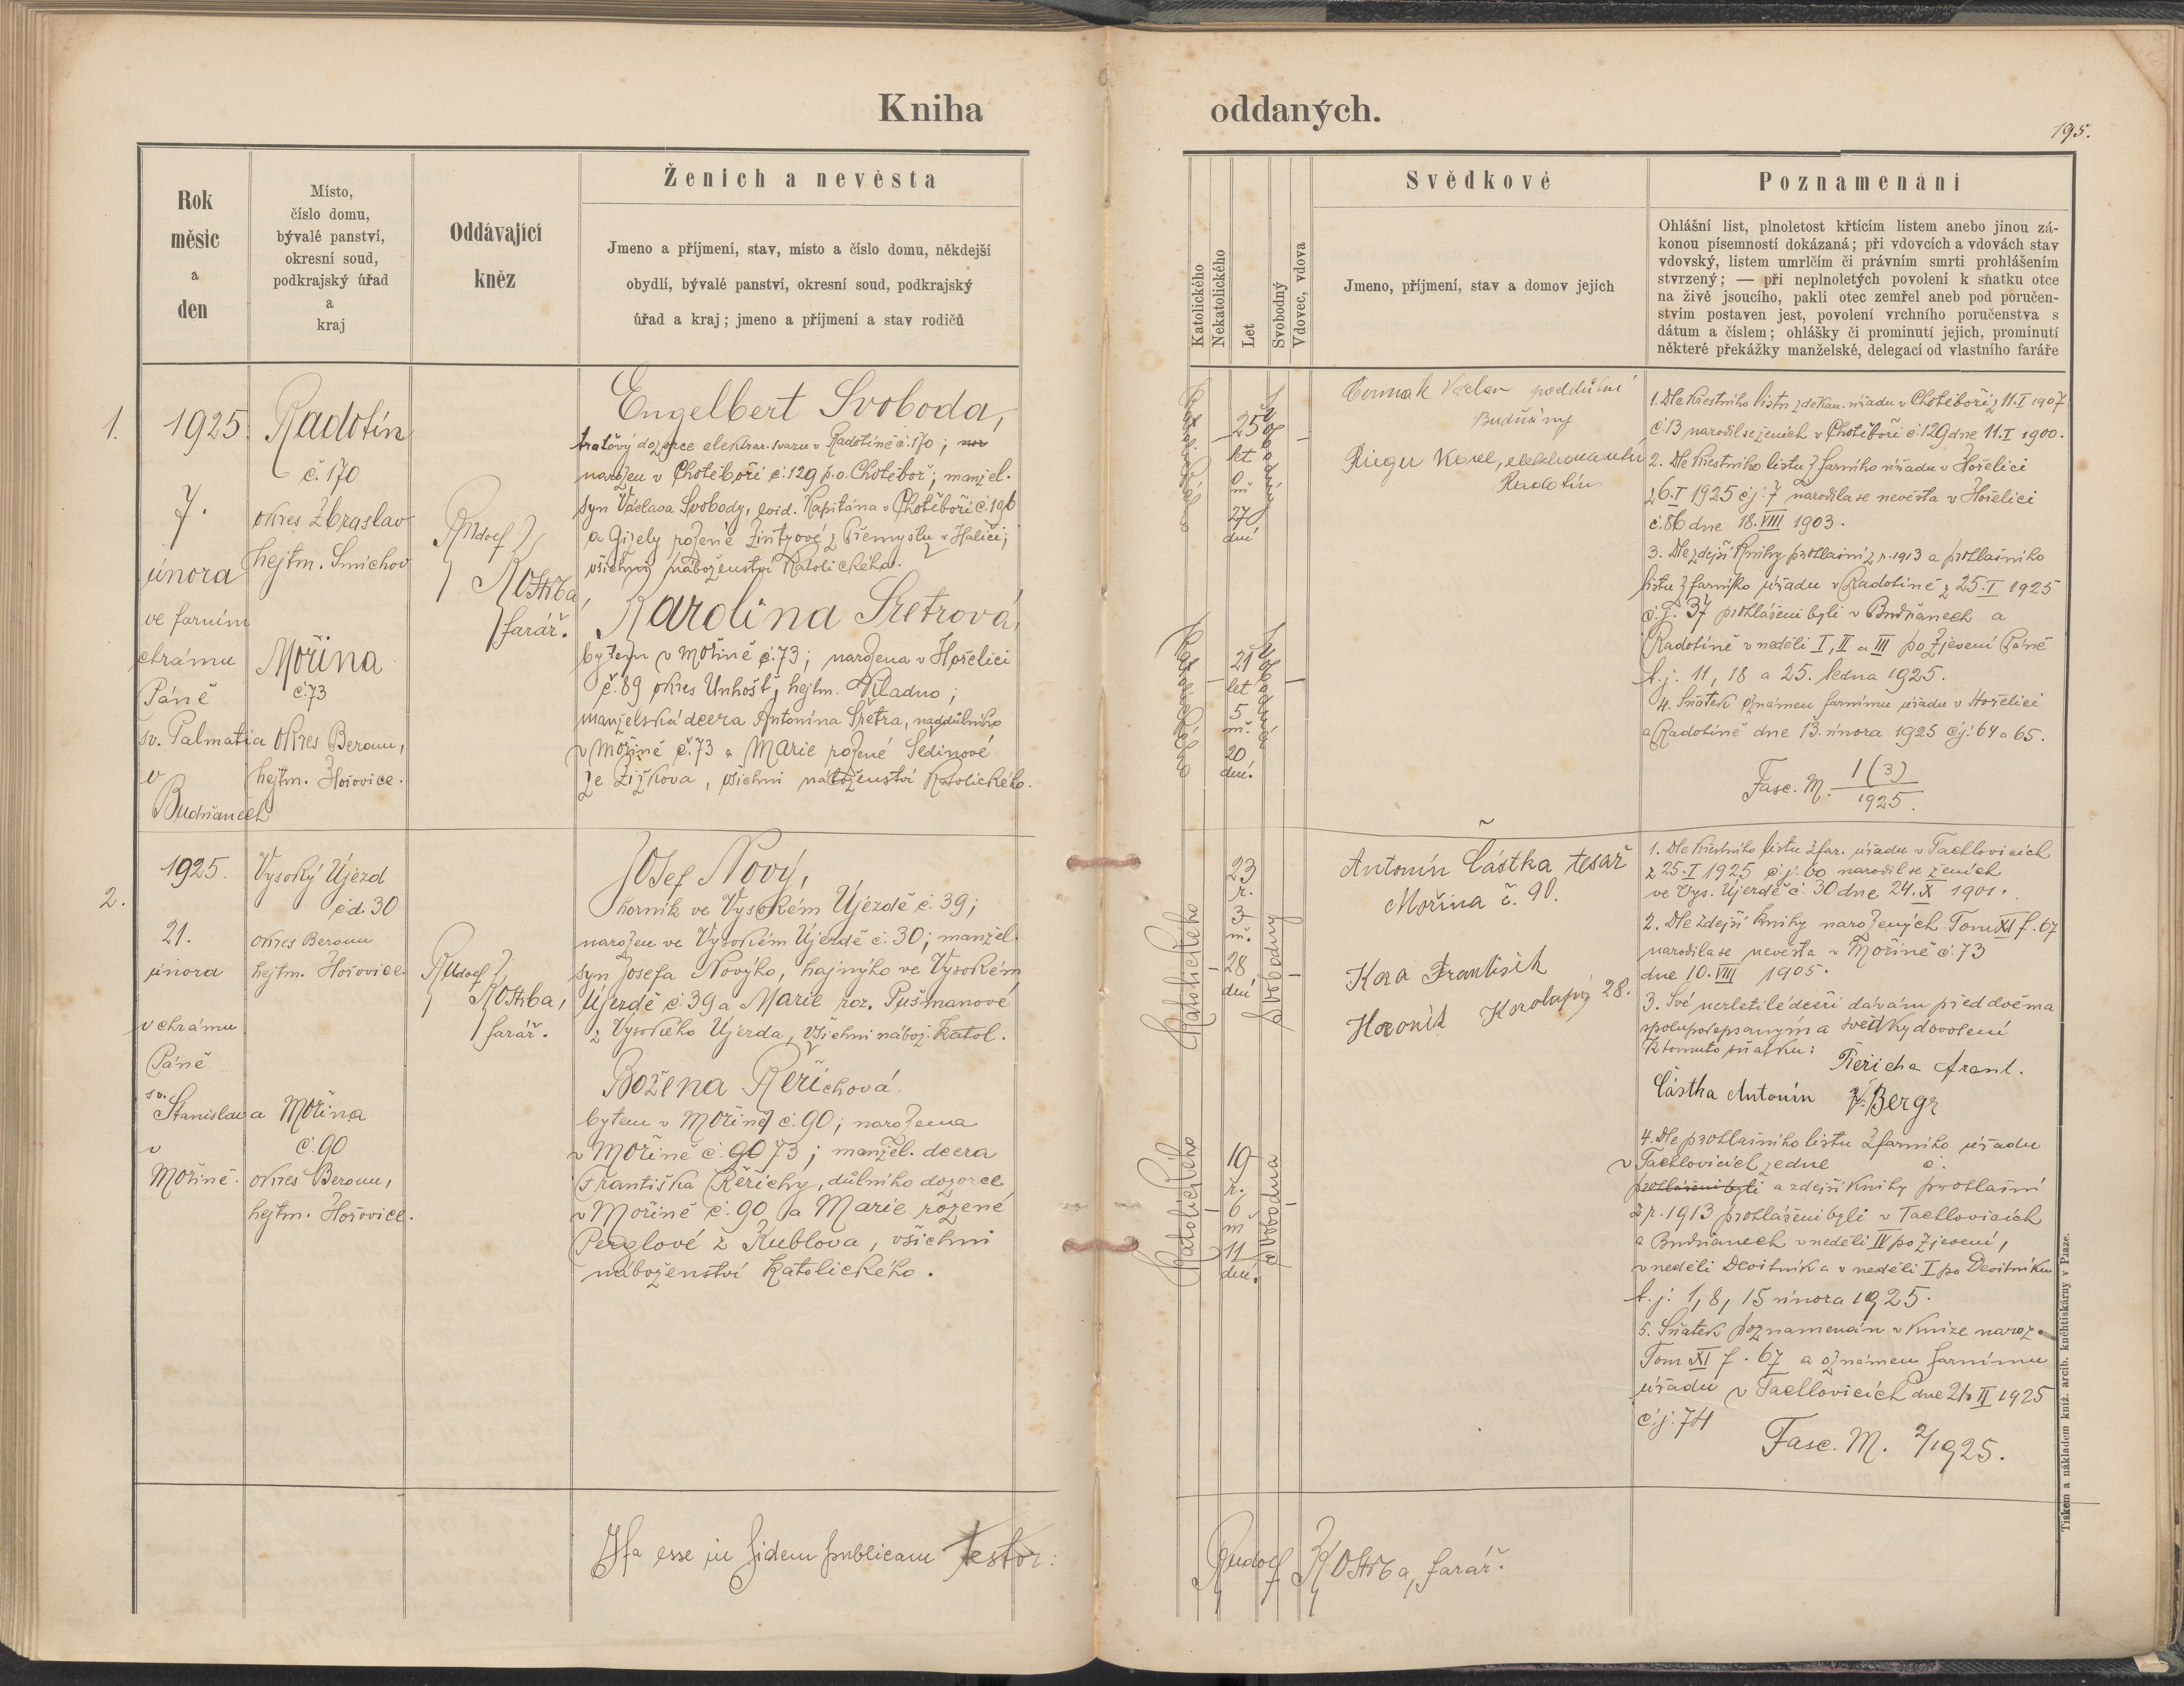 Kniha oddaných.
195.
Rok
měsíc
a
den
Místo,
číslo domu,
bývalé panství,
okresní soud,
podkrajský úřad
a
kraj
Oddávající
kněz
Ženich a nevěsta
Jmeno a příjmení, stav, místo a číslo domu, někdejší
obydlí, bývalé panství, okresní soud, podkrajský
úřad a kraj; jmeno a příjmení a stav rodičů
Katolického
Nekatolického
Let
Svobodný
Vdovec, vdova
Svědkové
Jmeno, příjmení, stav a domov jejich
Poznamenání
Ohlášní list, plnoletost křtícím listem anebo jinou zá-
konou písemností dokázaná; při vdovcích a vdovách stav
vdovský, listem umrlčím či právním smrti prohlášením
stvrzený; — při neplnoletých povolení k sňatku otce
na živě jsoucího, pakli otec zemřel aneb pod poručen-
stvím postaven jest, povolení vrchního poručenstva s
dátum a číslem; ohlášky či prominutí jejich, prominutí
některé překážky manželské, delegací od vlastního faráře
1.
1925
7.
února
ve farním
chrámu
Páně
sv. Palmatia
v
Budňanech
Radotín
č. 170
okres Zbraslav
hejtm. Smíchov
Mořina
č. 73
okres Beroun,
hejtm. Hořovice.
Rudolf
Kostiba,
farář.
Engelbert Svoboda,
traťový dozorce elektrar. svazu v Radotíně č. 170;
narozen v Chotěboři č. 129 p. o. Chotěboř; manžel.
syn Václava Svobody, evid. kapitána v Chotěboři č. 196
a Gizely rozené Zintzové z Přemyslu v Haliči;
všichni náboženství katolického.
Karolina Šretrová,
bytem v Mořině č. 73; narozena v Hořelici
č. 89 okres Unhošť, hejtm. Kladno;
manželská dcera Antonína Šretra, naddůlního
v Mořině č. 73 a Marie rozené Šedinové
ze Žižkova, všichni náboženství katolického.
Katolického
25
let
0
m
27
dní
Svobodný
Katolického
21
let
5
m.
20
dní.
Svobodná
Čermak Václav poddůlní
Budňány
Rieger Karel, elektromontér
Radotín
1. Dle křestního listu z děkan. úřadu v Chotěboři z 11. I 1907
č 13 narodil se ženich v Chotěboři č 129 dne 11. I 1900.
2. Dle křestního listu z farního úřadu v Hořelici
z 6. I 1925 č. j. 7 narodila se nevěsta v Hořelici
č. 86 dne 18. VIII 1903.
3. Dle zdejší knihy prohlášní z r. 1913 a prohlašního
listu z farního úřadu v Radotíně z 25. I 1925
č. j. 37 prohlášeni byli v Budňanech a
Radotíně v neděli I, II a III po Zjevení Páně
t. j. 11, 18 a 25. ledna 1925.
4. Sňatek oznámen farnímu úřadu v Hořelici
a Radotíně dne 13. února 1925 č j: 64 a 65.
Fasc. M. 1 (3)
1925.
2.
1925.
21.
února
v chrámu
Páně
sv.
Stanislava
v
Mořině.
Vysoký Újezd
čd. 30
okres Beroun
hejtm. Hořovice
Mořina
č. 90
okres Beroun,
hejtm. Hořovice.
Rudolf
Kostiba,
farář.
Josef Nový,
horník ve Vysokém Újezdě č. 39;
narozen ve Vysokém Újezdě č. 30; manžel.
syn Josefa Nového, hajného ve Vysokém
Újezdě č. 39 a Marie roz. Pušmanové
z Vysokého Újezda, všichni nábož. katol.
Božena Řeřichová,
bytem v Mořině č. 90; narozena
v Mořině č. 90 73; manžel. dcera
Františka Řeřichy, důlního dozorce
v Mořině č. 90 a Marie rozené
Perglové z Kublova, všichni
náboženství katolického.
Katolického
23
r.
3
m.
28
dní
Svobodný
Katolického
19
r.
6
m
11
dní.
Svobodna
Antonín Částka tesař
Mořina č. 90.
Kora František
Horník Karolupy 28.
1. Dle křestního listu z far. úřadu v Tachlovicích
z 25. I 1925 č. j. 60 narodil se ženich
ve Vys. Újezdě č. 30 dne 24. X 1901.
2. Dle zdejší knihy narozených Tom XI f. 67
narodila se nevěsta v Mořině č. 73
dne 10. VIII 1905.
3. Své nezletilé dceři dávám před dvěma
spolupodepsanýma svědky dovolení
k tomuto sňatku:
Řeřicha Frant.
Částka Antonín V. Bergr
4. Dle prohlašního listu z farního úřadu
v Tachlovicích ze dne č.
prohlášeni byli a zdejší knihy prohlašní
z r. 1913 prohlášeni byli v Tachlovicích
a Budňanech v neděli IV po Zjevení,
v neděli Devítník a v neděli I po Devítníku
t. j. 1, 8, 15 února 1925.
5. Sňatek poznamenán v knize naroz.
Tom XI f. 67 a oznámen farnímu
úřadu v Tachlovicích dne 21. II 1925
č. j. 74
Fasc. M. 2/1925.
Ita esse in fidem publicam testor:
Rudolf Kostiba, farář.
Tiskem a nákladem kníž. arcib. knihtiskárny v Praze.